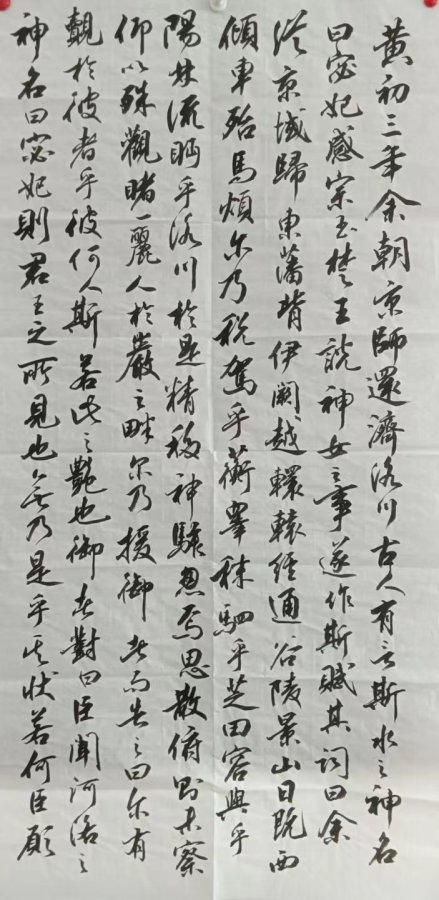 黃初三年余朝京師還濟洛川古人有言斯水之神名
曰宓妃感宋玉楚王說神女之事遂作斯賦其詞曰余
從京域歸東藩背伊闕越轘轅經通谷陵景山日既西
傾車殆馬煩尔乃稅駕乎蘅皋秣駟乎芝田容與乎
陽林流眄乎洛川於是精移神駭忽焉思散俯則未察
仰以殊觀睹一麗人於巖之畔尔乃援御者而告之曰尔有
覿於彼者乎彼何人斯若此之豔也御者對曰臣聞河洛之
神名曰宓妃則君王之所見也無乃是乎其狀若何臣願